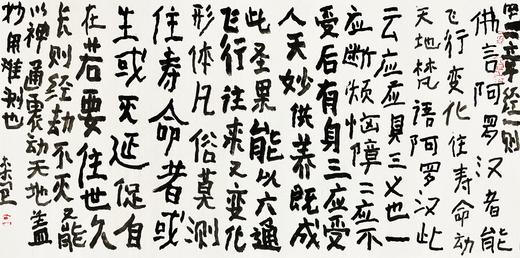 四十二章经一则
佛言阿罗汉者能
飞行变化住寿命动
天地梵语阿罗汉此
云应应具三义也一
应断烦恼障二应不
受后有身三应受
人天妙供养既成
此圣果能以六通
飞行往来又变化
形体凡俗莫测
住寿命者或
生或灭延促自
在若要住世久
长则经劫不灭又能
以神通震动天地盖
妙用难测也